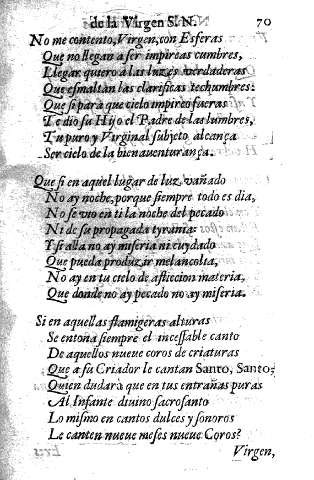 de la Virgen S. N. 70
No me contento, Virgen, con Esferas
Que no llegan a ser impireas cumbres,
Llegar quiero a las luzes verdaderas
Que esmaltan las clarificas techumbres:
Que si para que cielo impireo fueras
Te dio su Hijo el Padre de las lumbres,
Tu puro y Virginal subyeto alcança
Ser cielo de la bienauenturança.
Que si en aquel lugar de luz vañado
No ay noche, porque siempre todo es dia,
No se vio en ti la noche del pecado
Ni de su propagada tyrania:
Y si alla no ay miseria ni cuydado
Que pueda produzir melancolia,
No ay en tu cielo de afliccion materia,
Que donde no ay pecado no ay miseria.
Si en aquellas flamigeras alturas
Se entona siempre el incessable canto
De aquellos nueue coros de criaturas
Que a su Criador le cantan Santo, Santo;
Quien dudarà que en tus entrañas puras
Al Infante diuino sacrosanto
Lo mismo en cantos dulces y sonoros
Le canten nueue meses nueue Coros?
Virgen,